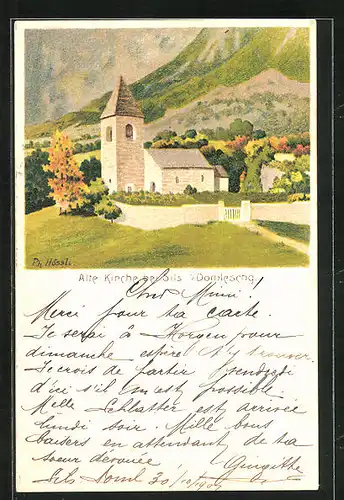 Ph. Hössli
Alte Kirche bei Sils i/Domleschg
Mimi!
Merci pour ta carte.
Je serai à Horgen pour
dimanche espère t'y trouver.
Je crois de partir vendredi
d'ici s'il m'est possible.
Melle Schlatter est arrivée
lundi soir. Mille bons
baisers en attendant de ta
soeur dévouée
Sils 30/